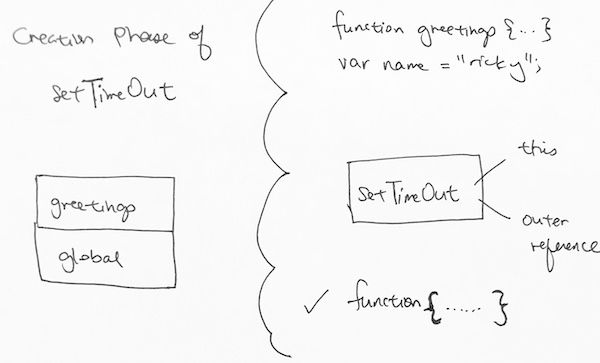 Creation Phase of
setTimeOut
greetings
global
function greetings {...}
var name = "ricky";
setTimeOut
this
outer
reference
✓ function {......}